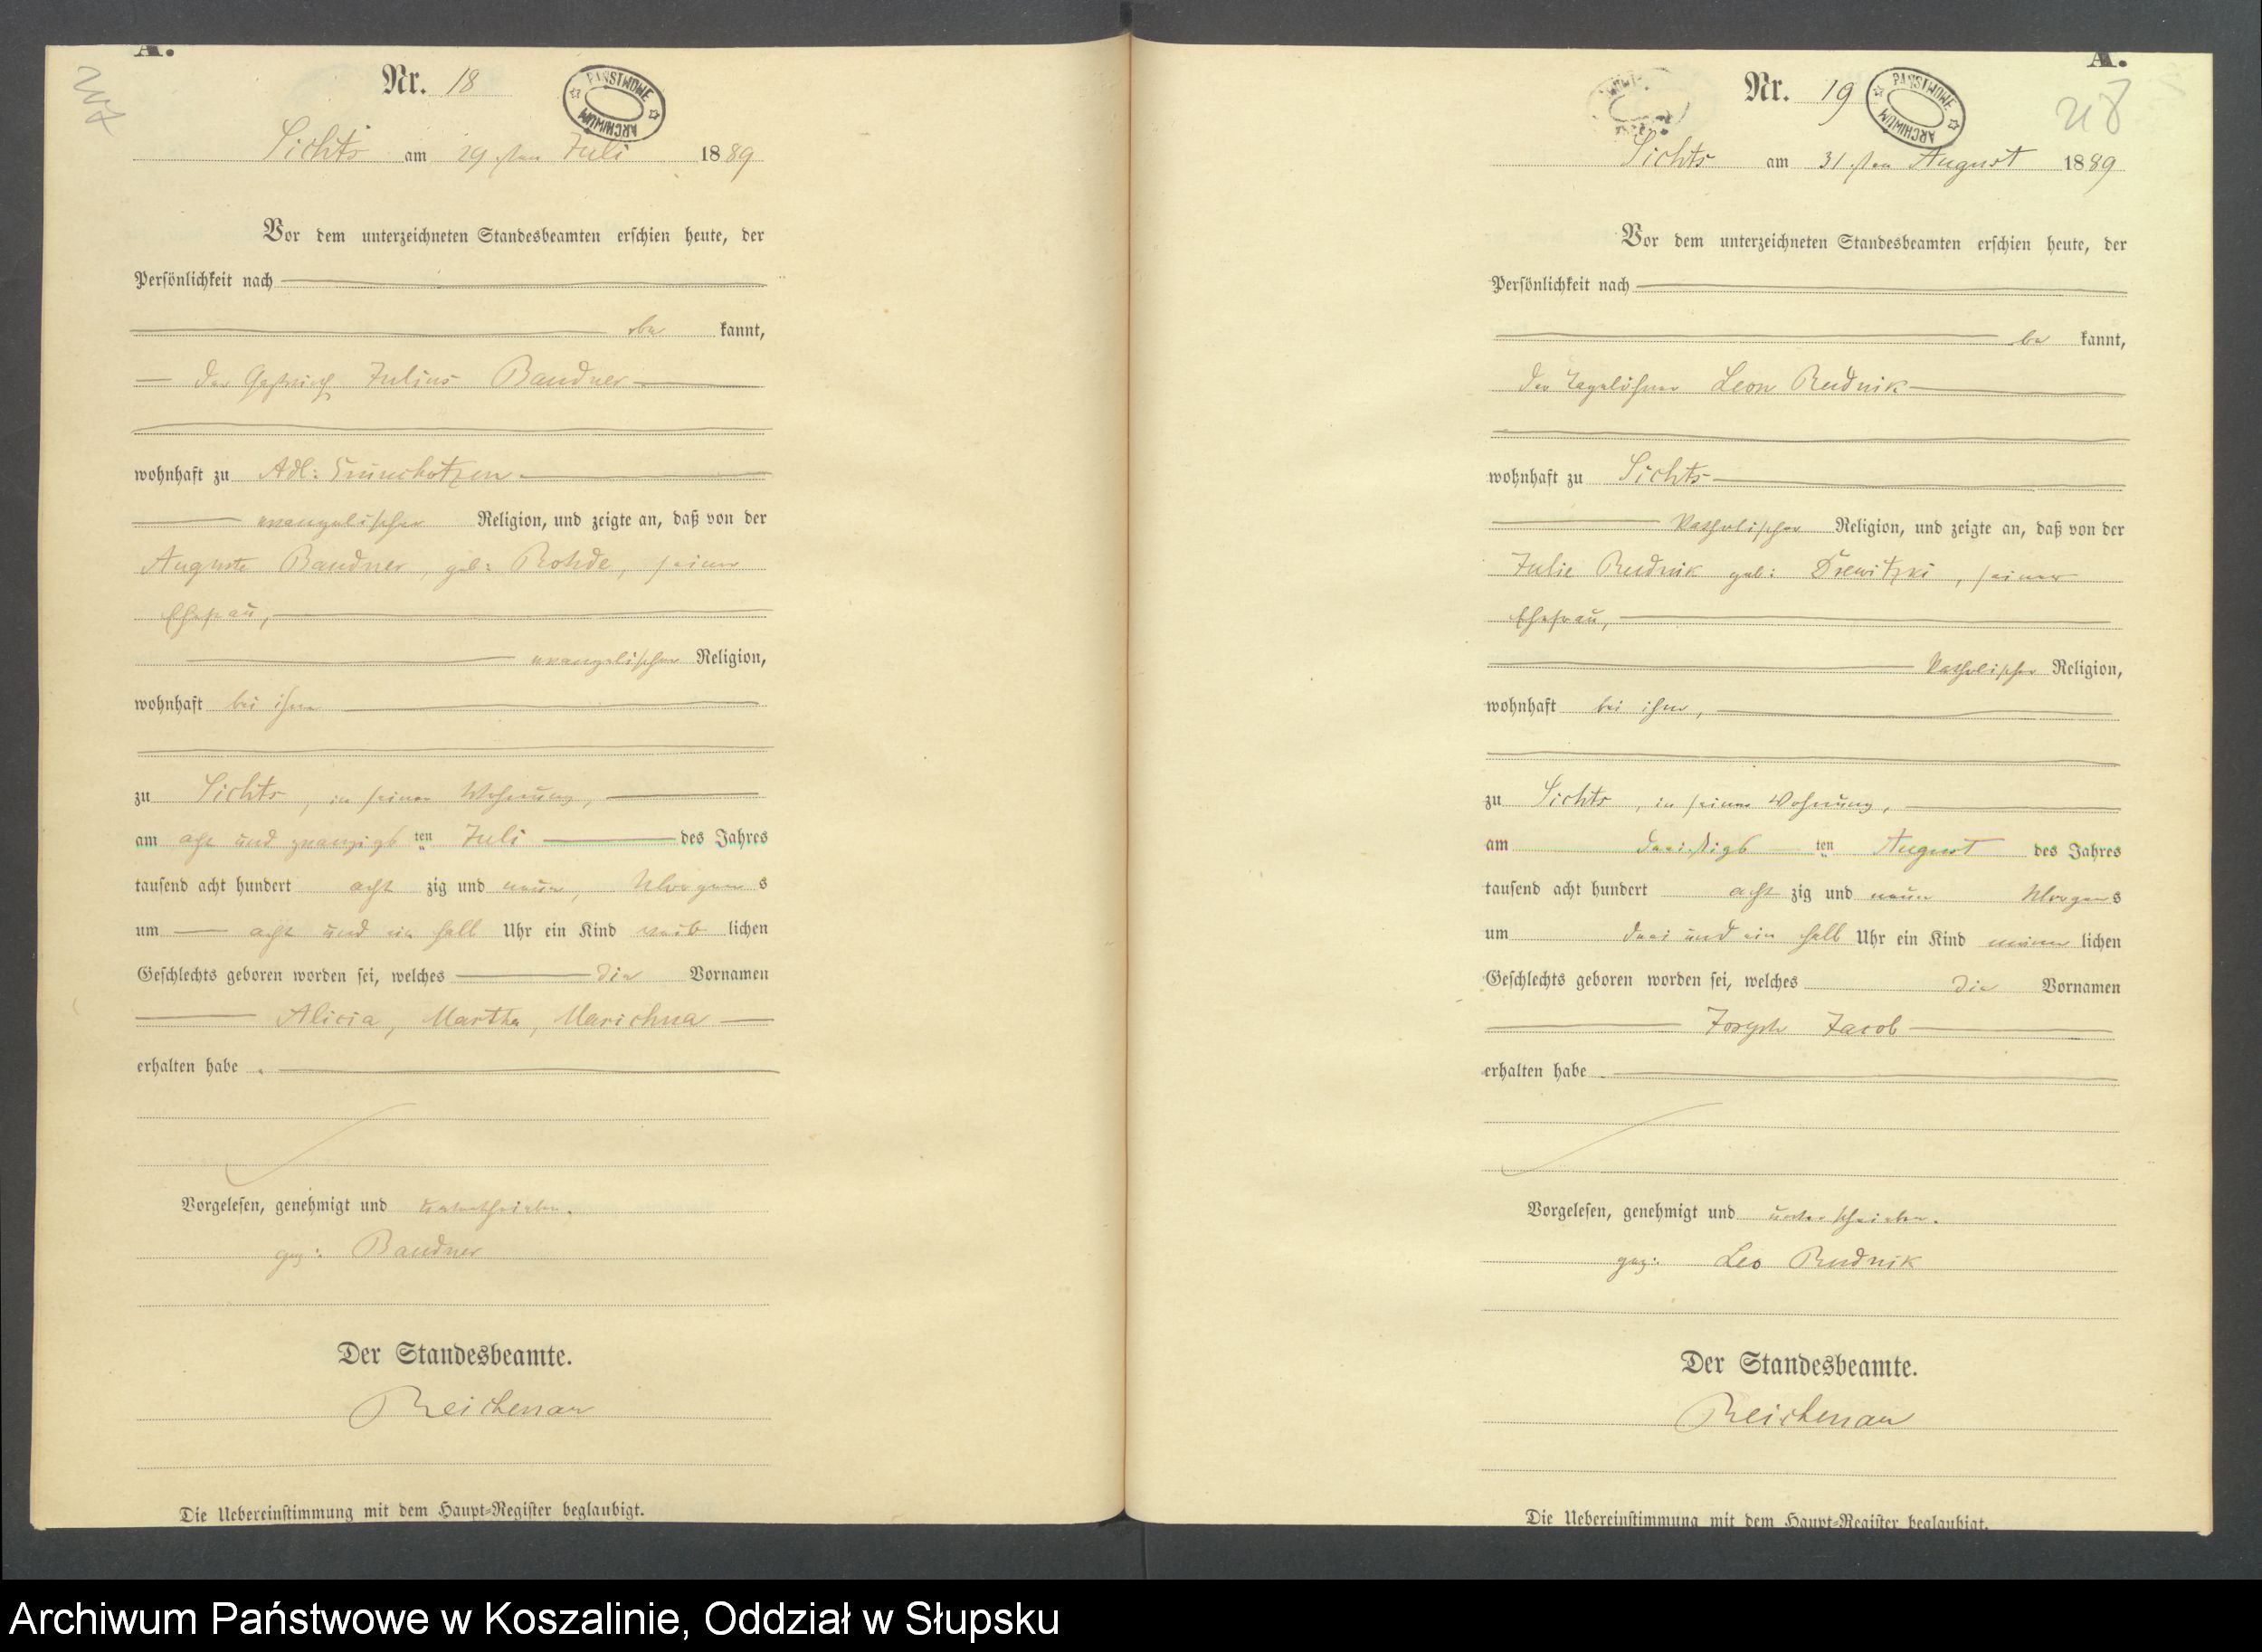 A.
Nr. 18
PAŃSTWOWE ARCHIWUM
Sichts am 29 sten Juli 1889
Vor dem unterzeichneten Standesbeamten erschien heute, der
Persönlichkeit nach
be kannt,
der Julius Baudner
wohnhaft zu Adl: Grünchotzen
evangelischer Religion, und zeigte an, daß von der
Auguste Baudner, geb: Rohde, seiner
Ehefrau,
evangelischer Religion,
wohnhaft bei ihm
zu Sichts, in seiner Wohnung,
am acht und zwanzigsten Juli des Jahres
tausend acht hundert acht zig und neun, Morgens
um acht und ein halb Uhr ein Kind weib lichen
Geschlechts geboren worden sei, welches die Vornamen
Alicia, Martha, Marichna
erhalten habe.
Vorgelesen, genehmigt und unterschrieben.
gez: Baudner
Der Standesbeamte.
Reichenau
Die Uebereinstimmung mit dem Haupt-Register beglaubigt.
A.
Nr. 19
PAŃSTWOWE ARCHIWUM
218
Sichts am 31 sten August 1889
Vor dem unterzeichneten Standesbeamten erschien heute, der
Persönlichkeit nach
be kannt,
der Tagelöhner Leon Rudnik
wohnhaft zu Sichts
katholischer Religion, und zeigte an, daß von der
Julie Rudnik geb: Drewitzki, seiner
Ehefrau,
katholischer Religion,
wohnhaft bei ihm,
zu Sichts, in seiner Wohnung,
am dreißigsten August des Jahres
tausend acht hundert acht zig und neun Morgens
um drei und ein halb Uhr ein Kind männ lichen
Geschlechts geboren worden sei, welches die Vornamen
Joseph Jacob
erhalten habe.
Vorgelesen, genehmigt und unterschrieben.
gez: Leo Rudnik
Der Standesbeamte.
Reichenau
Die Uebereinstimmung mit dem Haupt-Register beglaubigt.
Archiwum Państwowe w Koszalinie, Oddział w Słupsku